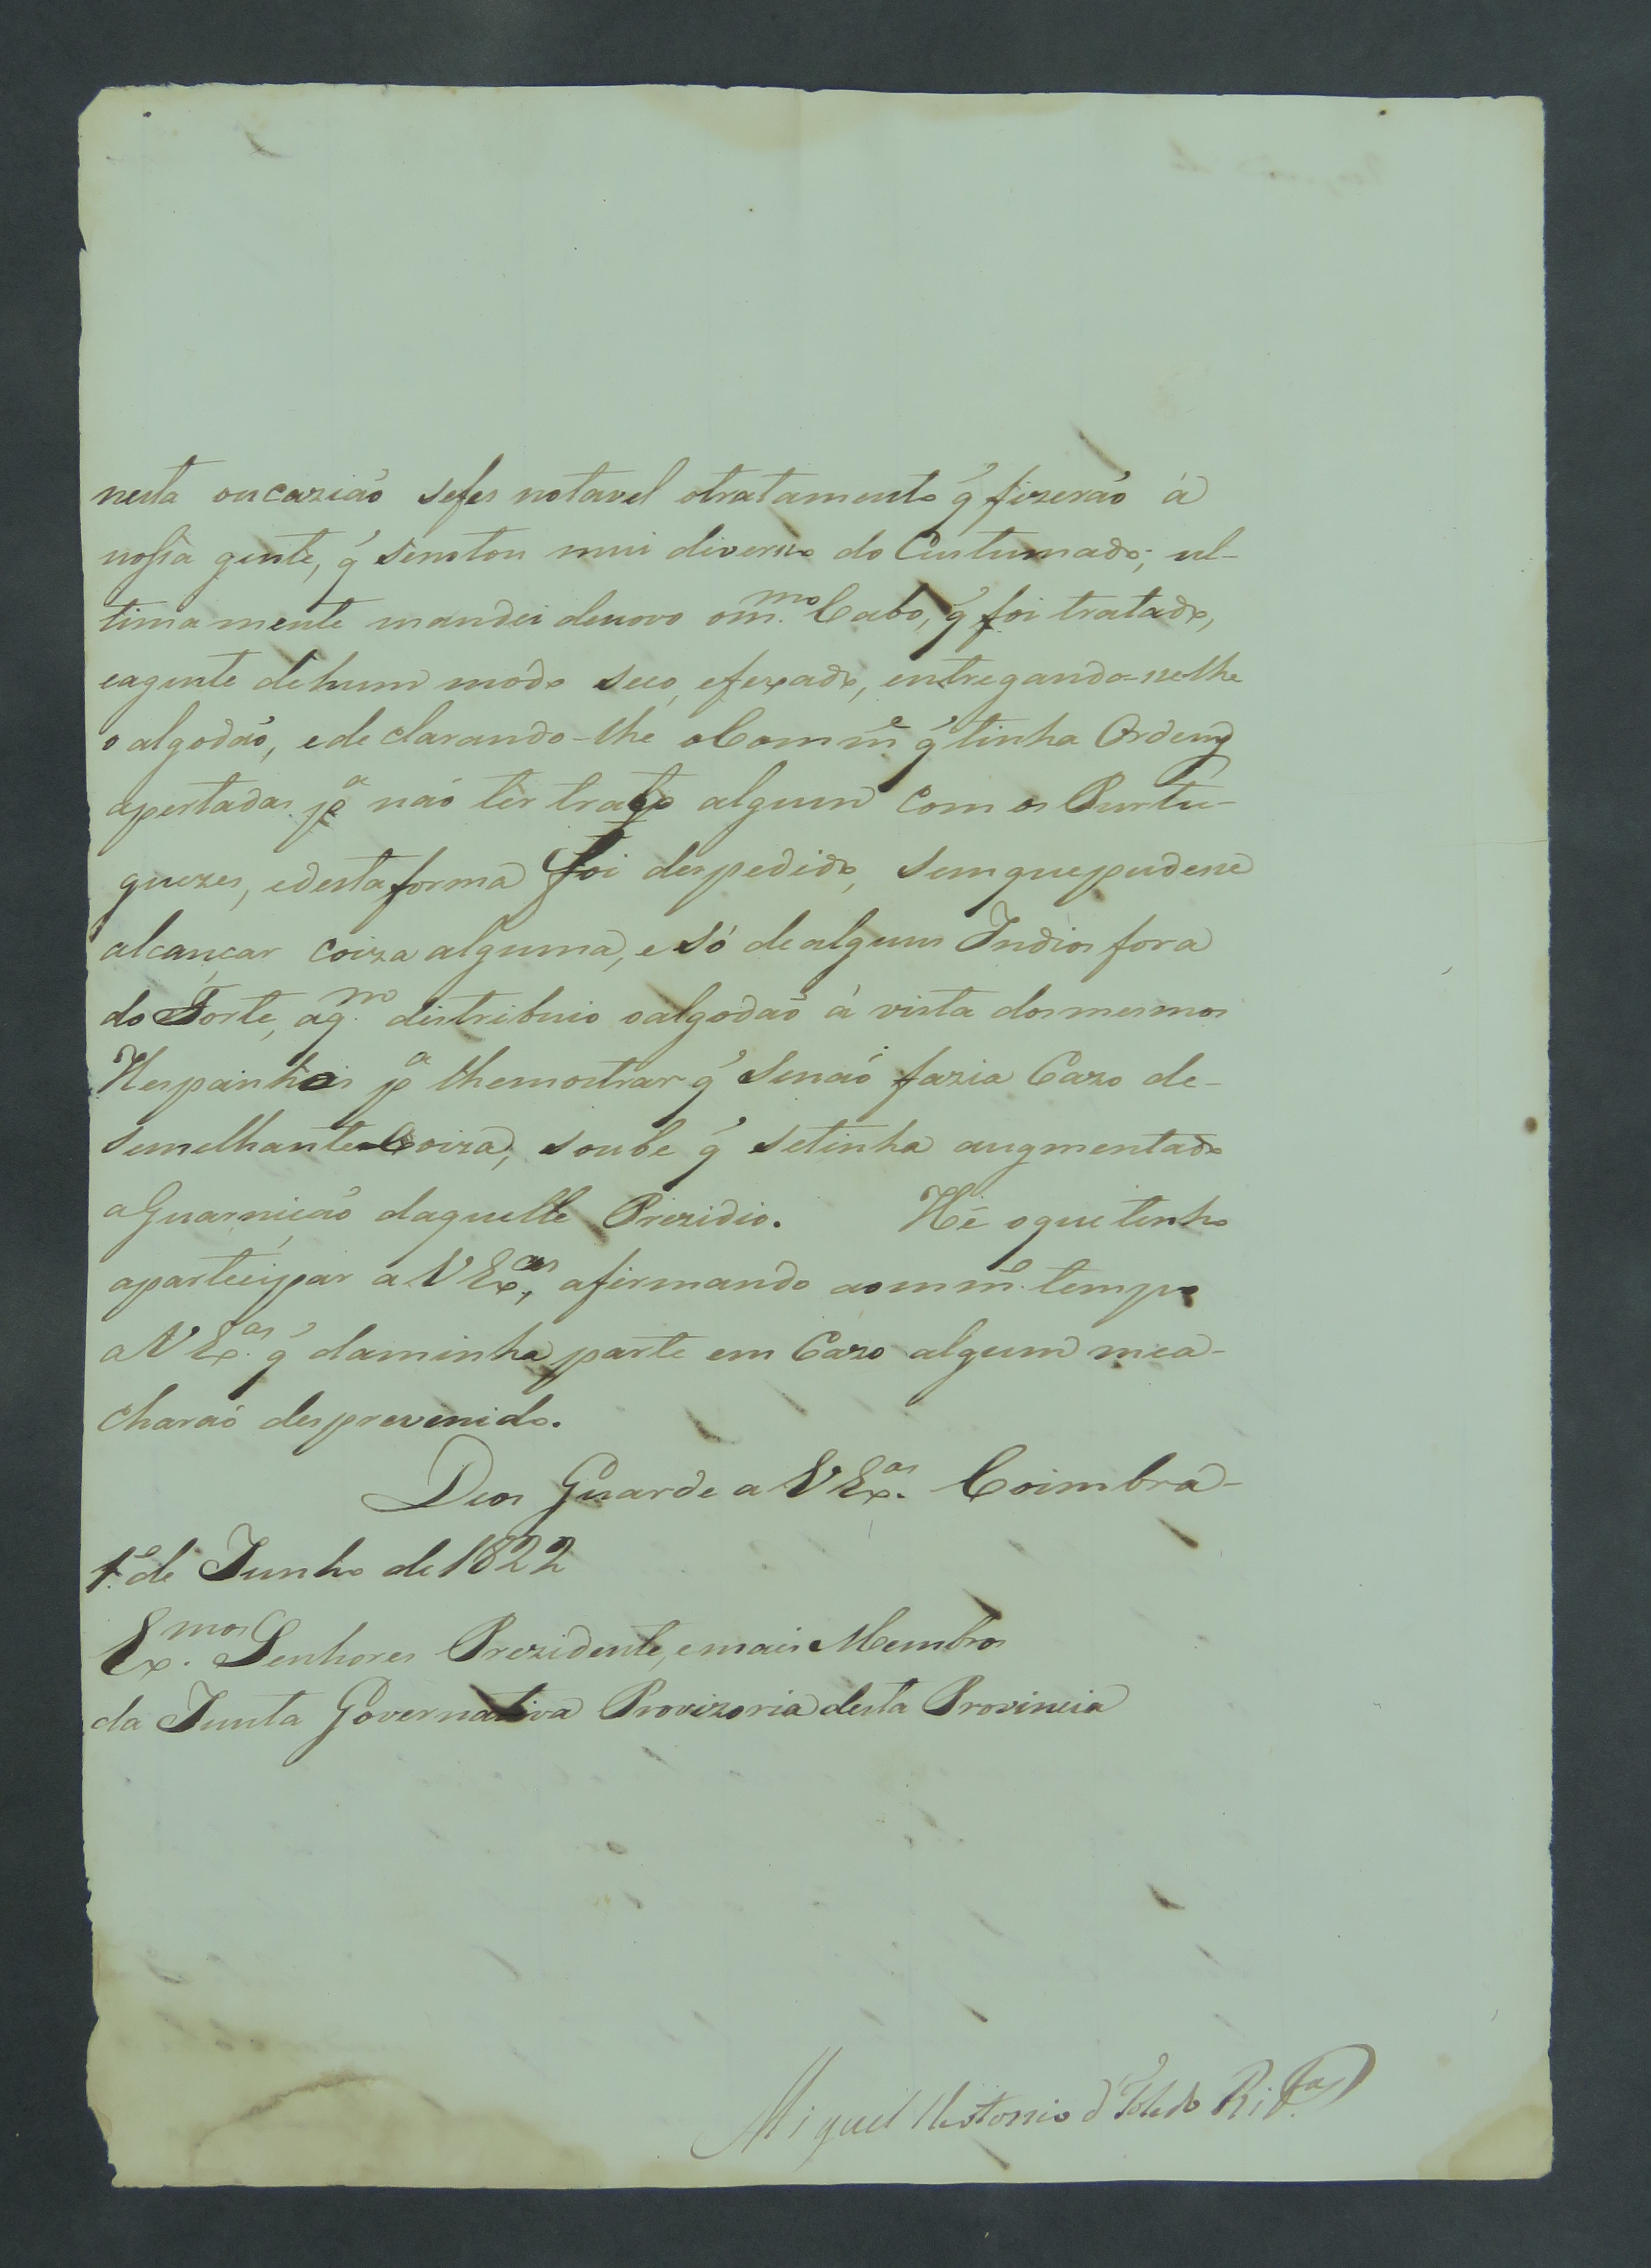 nesta oucazião sefes notavel otratamento q̃ fizerão á
nossa gente, q̃ senotou mui diverso do Custumado; ul-
tima mente mandei denovo om.mo Cabo, q̃ foi tratado,
eagente dehum módo seco, efexado, entregando-selhe
o algodão, ede clarando-lhe oComm.e q̃ tinha Ordens
apertadas p.a não têr trato algum com os Purtu-
guezes, edestaforma foi despedido, semquepudesse
alcançar coiza alguma, e só dealguns Indios fora
do Forte, aq.m destribuio oalgodão á vista dosmesmos
Hespanhois p.a lhemostrar q̃ Senão fazia Cazo de-
semelhante Coiza, soube q̃ setinha augmentado
aGuarnição daquelle Prezidio. Hé oquetenho
aparteçipar a VEx.as, afirmando aomm.o tempo
aVEx.as q̃ daminha parte em Cazo algum mea-
charaó desprevenido.
Deos Guarde a VEx.as Coimbra
1.o de Junho de 1822
Ex.mos Senhores Prezidente, emais Membros
da Junta Governativa Provizoria desta Provincia
Miguel Antonio d'Toledo Rib.as